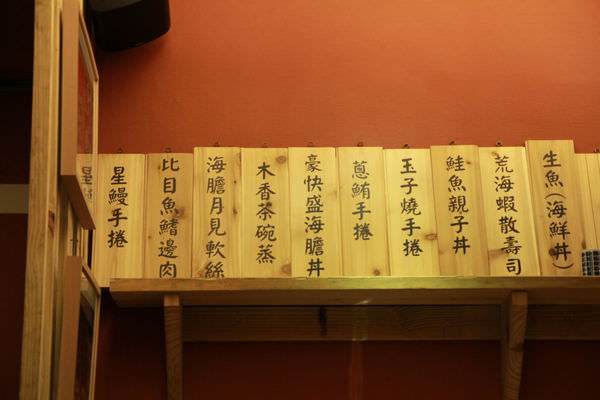 星鰻手捲
比目魚鰭邊肉
海膽月見軟絲
木香茶碗蒸
豪快盛海膽丼
蔥鮪手捲
玉子燒手捲
鮭魚親子丼
荒海蝦散壽司
生魚(海鮮丼)